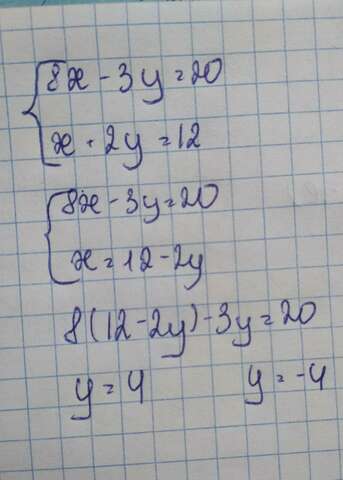 8x - 3y = 20
x + 2y = 12
8x - 3y = 20
x = 12 - 2y
8(12 - 2y) - 3y = 20
y = 4 y = -4